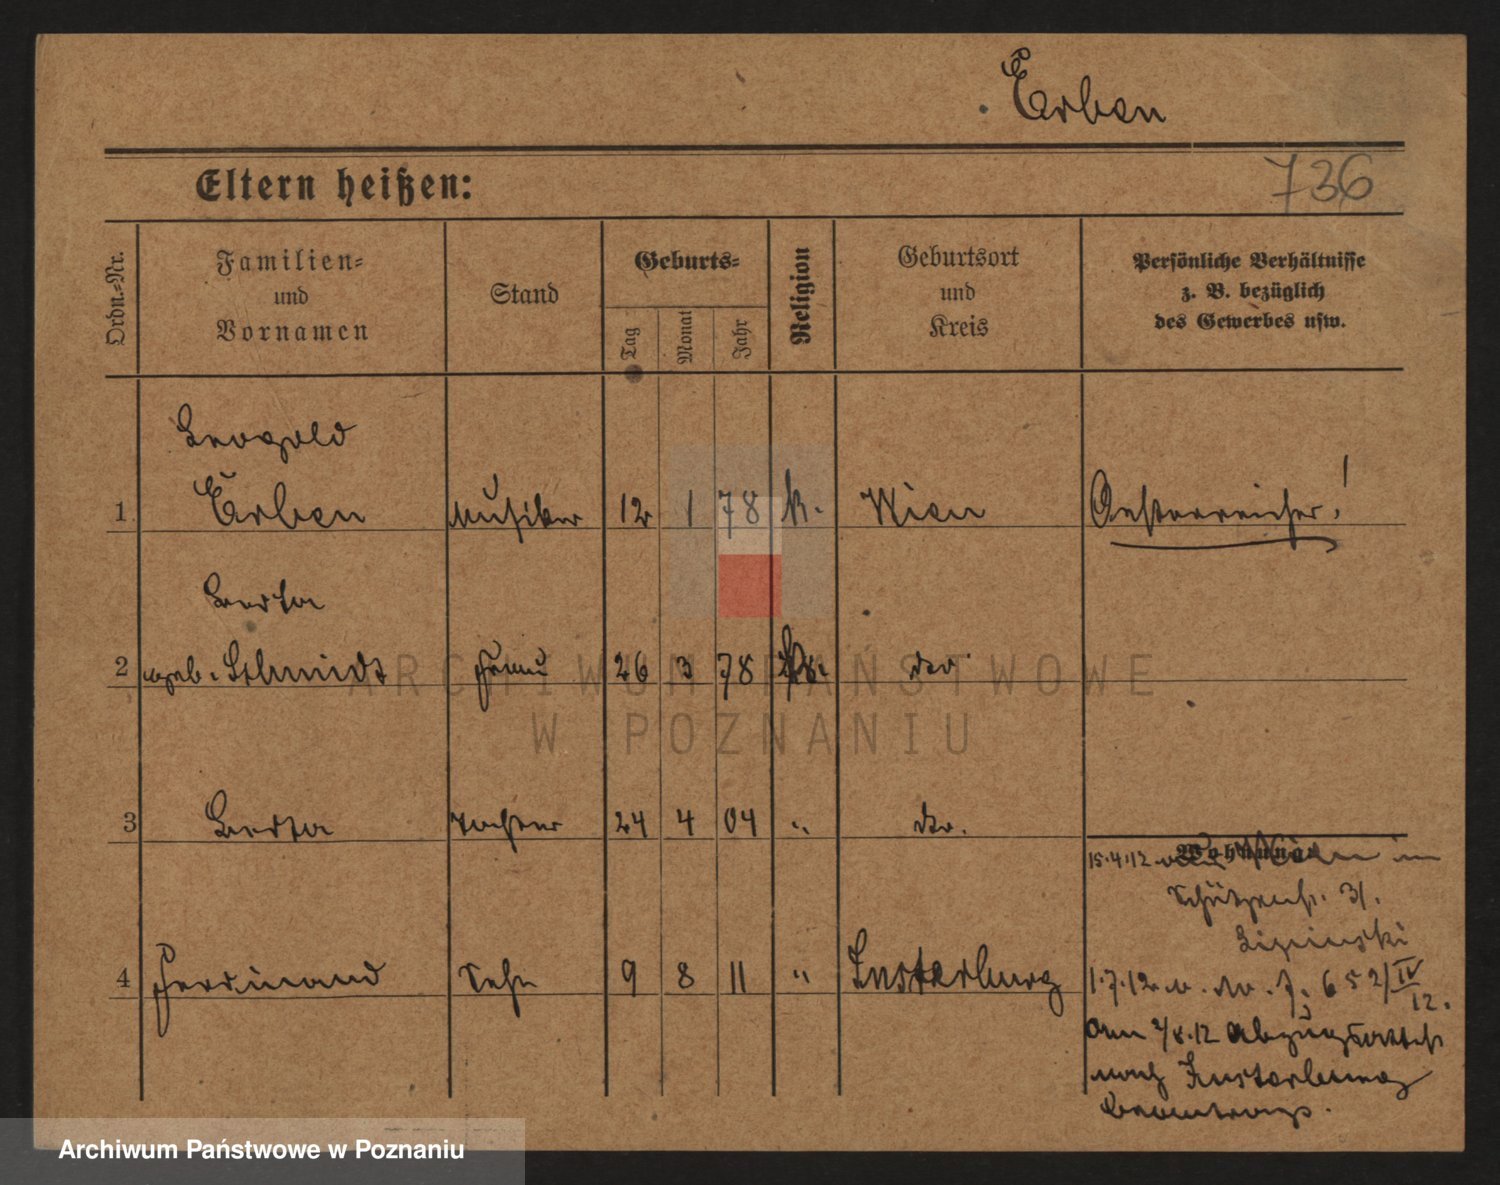 Erben
Eltern heißen:
736
Ordn.-Nr.
Familien-
und
Vornamen
Stand
Geburts-
Tag
Monat
Jahr
Religion
Geburtsort
und
Kreis
Persönliche Verhältnisse
z. B. bezüglich
des Gewerbes usw.
Leopold
1 Erben Musiker 12 1 78 k. Wien Oesterreicher!
Berta
2 geb. Schmidt Frau 26 3 78 do
3 Berta Tochter 24 4 04 " do.
Wohnung
15.4.12 Wien
Schützenstr. 31.
Lipinski
4 Ferdinand Sohn 9 8 11 " Insterburg
1.7.12 652/IV
12.
am 2/8.12 Abzugsattest
nach Insterburg
beantragt.
ARCHIWUM PAŃSTWOWE
W POZNANIU
Archiwum Państwowe w Poznaniu